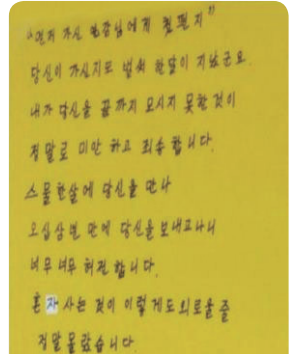 "먼저 가신 회장님에게 첫편지"
당신이 가신지도 벌써 한달이 지났군요.
내가 당신을 끝까지 모시지 못한것이
정말로 미안 하고 죄송 합니다.
스물한살에 당신을 만나
오십삼번 만에 당신을 보내고나니
너무 너무 허전 합니다.
혼자 사는 것이 이렇게도 외로울 줄
정말 몰랐습니다.